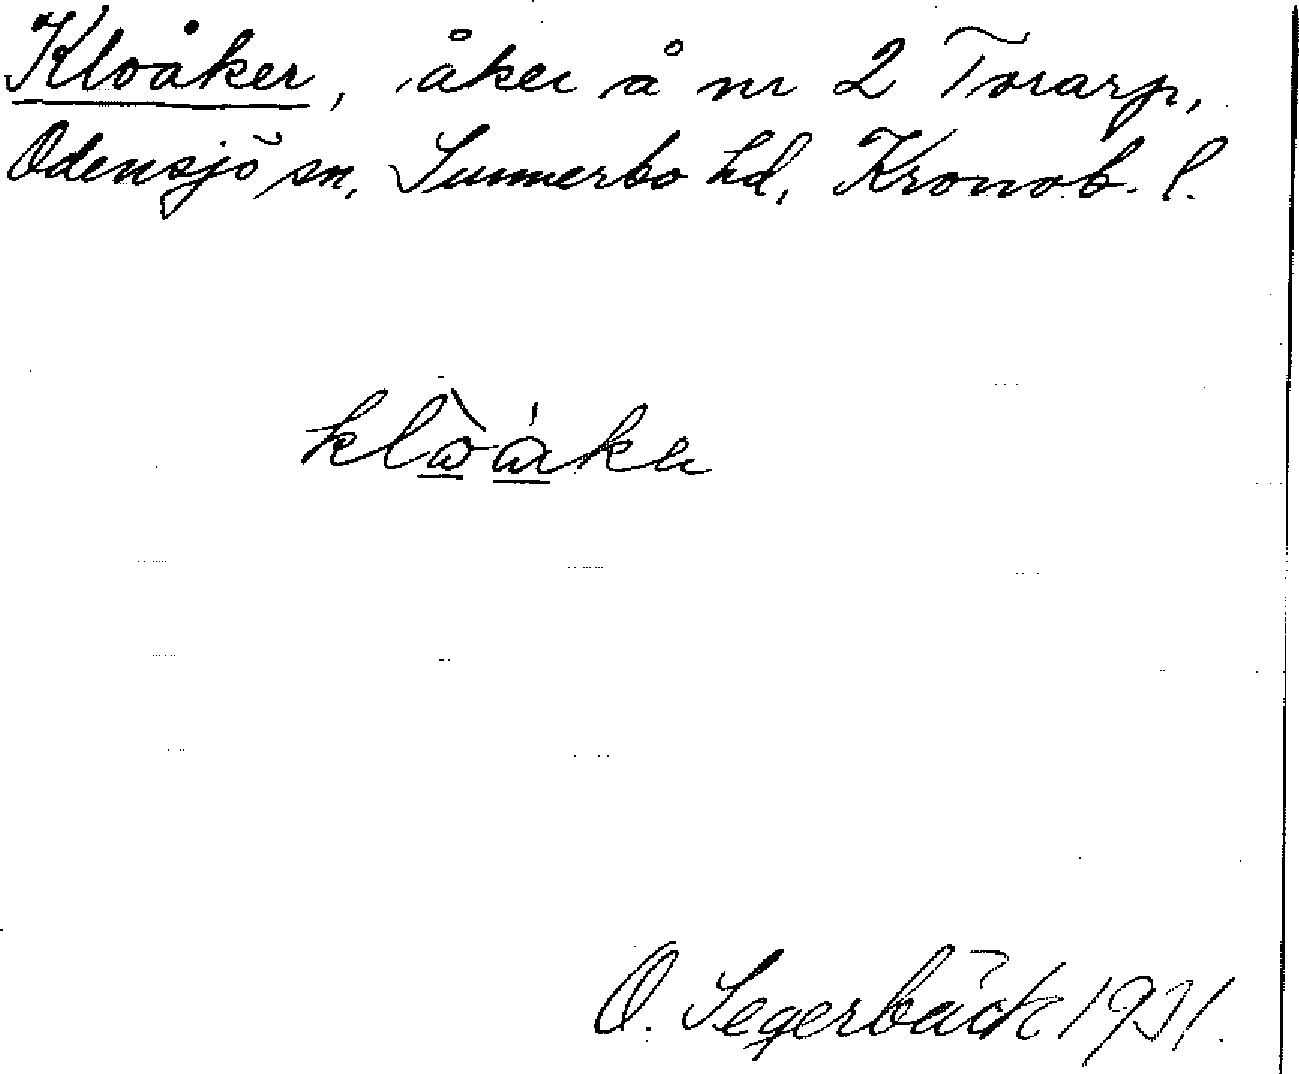 Kloåker, åker å nr 2 Torarp,
Odensjö sn, Sunnerbo hd, Kronob. l.
O. Segerbäck 1931.